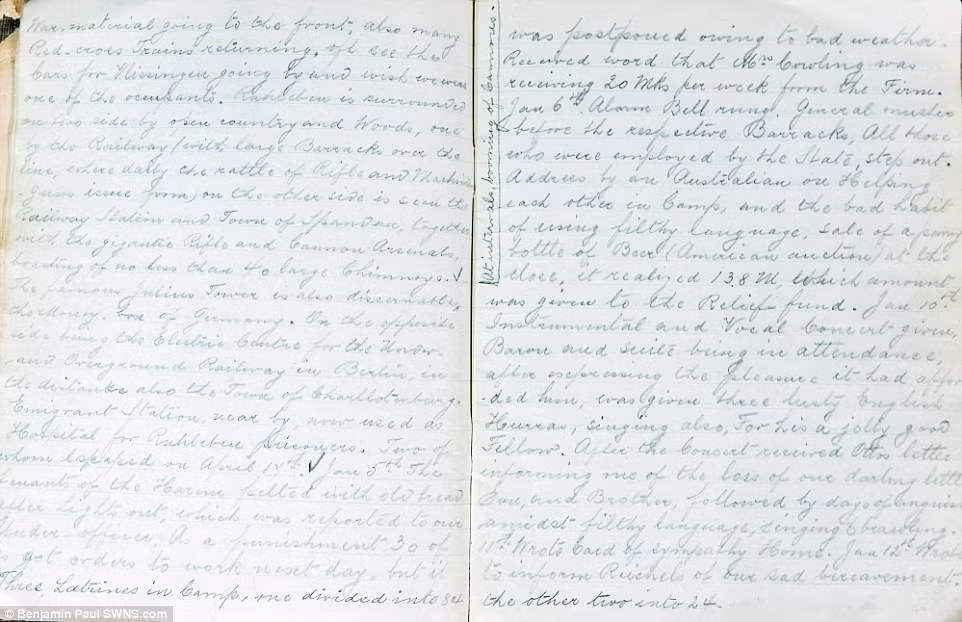 War material going to the front, also many
Red-cross Trains returning. oft see the
Cars for Vlissingen going by and wish we were
one of the occupants. Ruhleben is surrounded
on two side by open country and Woods, one
by the Railway (with large Barracks over the
line, where daily the rattle of Rifle and Machine
Guns issue from) on the other side is seen the
Railway Station and Town of Spandau, together
with the gigantic Rifle and Cannon Arsenals,
boasting of no less than 40 large Chimneys. ✓
The famous Julius Tower is also discernable,
the Money box of Germany. On the opposite
side being the Electric Centre for the Under-
-and Overground Railway in Berlin, in
the distance also the Town of Charlottenburg.
Emigrant Station, near by, now used as
Hospital for Ruhleben prisoners. Two of
whom escaped on April ✓ Jan 5th The
tenants of the Harem pelted with old bread
after Lights out, which was reported to our
Under-officer, As a punishment 30 of
us got orders to work next day, but it
Three Latrines in Camp, one divided into 84
At intervals, booming of Cannons.
was postponed owing to bad weather.
Received word that Mrs Cowling was
receiving 20 Mks per week from the Firm.
Jan 6th. Alarm Bell rung. General muster
before the respective Barracks, All those
who were employed by the State, step out.
Address by an Australian on Helping
each other in Camp, and the bad habit
of using filthy language, sale of a penny
bottle of Beer (American auction) at the
close, it realized 138 M, which amount
was given to the Relief fund. Jan 10th
Instrumental and Vocal Concert given,
Baron and Suite being in attendance,
after expressing the pleasure it had affor-
-ded him, was given three lusty English
Hurras, singing also, For he's a jolly good
Fellow. After the Concert received letter
informing me of the loss of our darling little
and Brother, followed by days of anguish
amidst filthy language, singing & brawling.
11th Wrote Card of sympathy Home. Jan 12th Wrote
to inform Reichels of our sad bereavement.
the other two into 24.
© Benjamin Paul SWNS.com